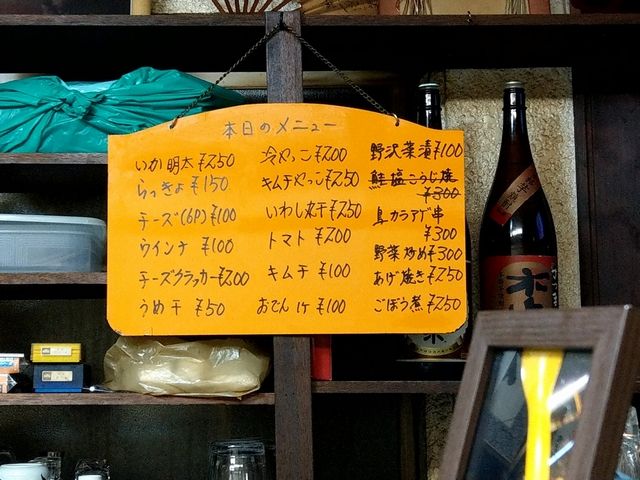 本日のメニュー
いか明太 ¥250
らっきょ ¥150
チーズ(6P) ¥100
ウインナ ¥100
チーズクラッカー ¥200
うめ干 ¥50
冷やっこ ¥200
キムチやっこ ¥250
いわし丸干 ¥250
トマト ¥200
キムチ ¥100
おでん 1ヶ ¥100
野沢菜漬 ¥100
鮭塩こうじ焼
¥300
鳥カラアゲ串
¥300
野菜炒め ¥300
あげ焼き ¥250
ごぼう煮 ¥250